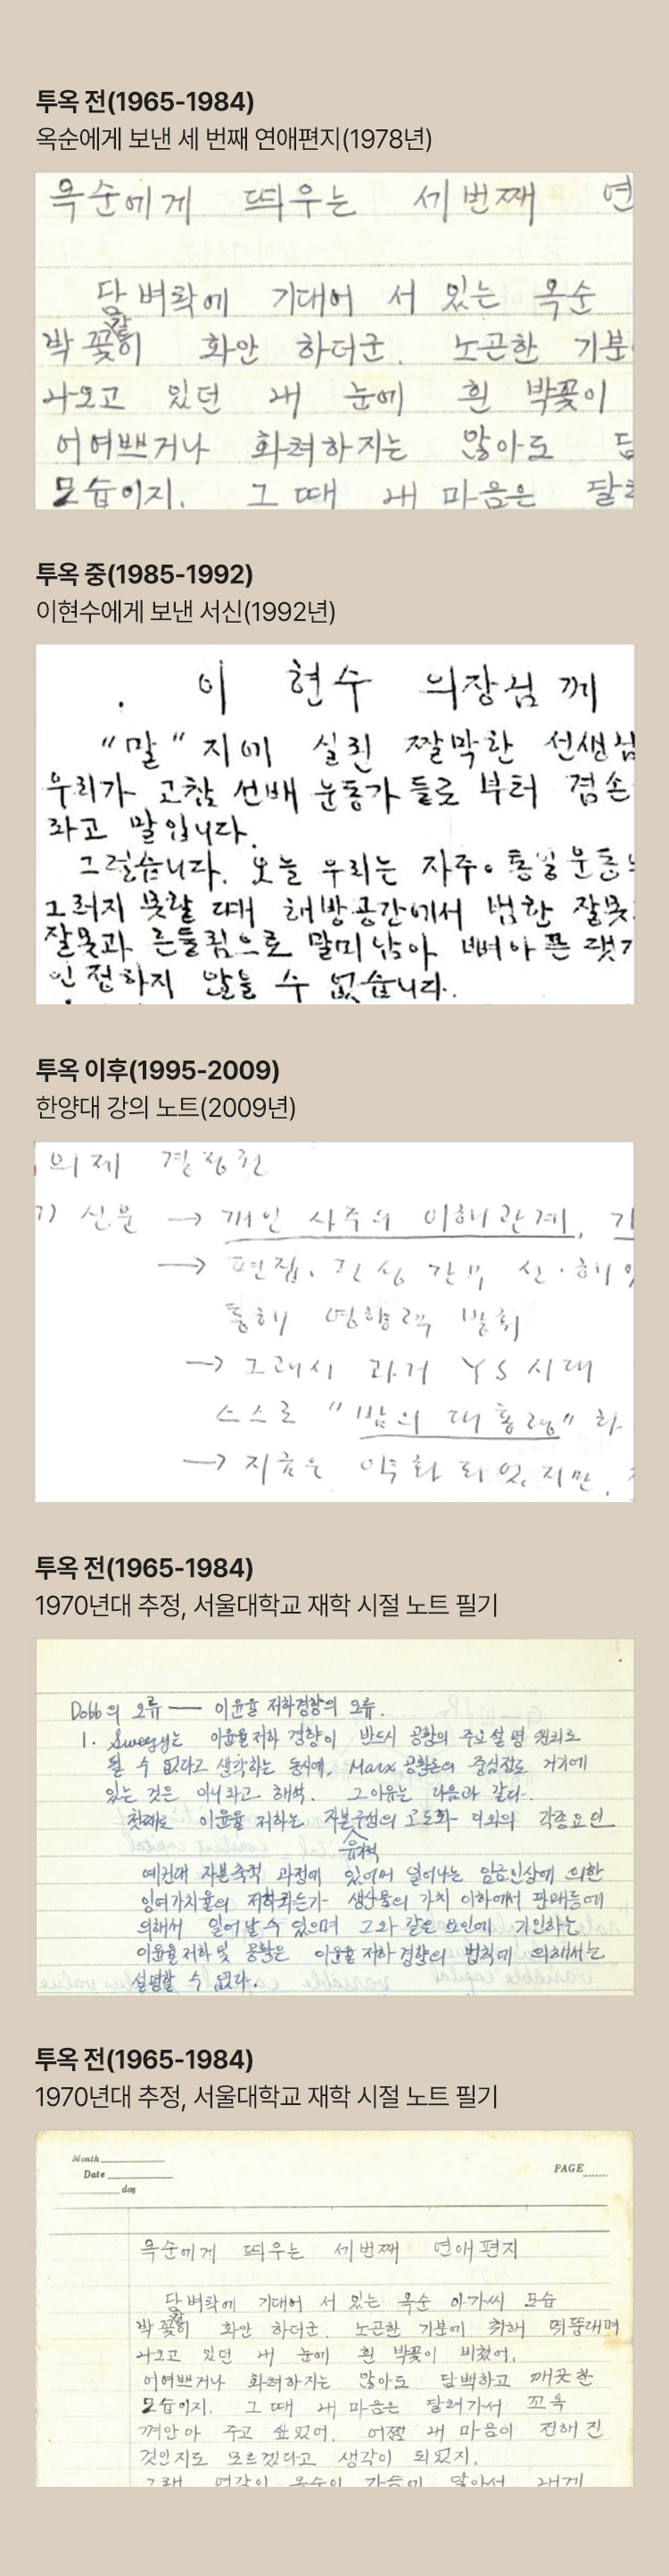 투옥 전(1965-1984)
옥순에게 보낸 세 번째 연애편지(1978년)
옥순에게 띄우는 세번째 연
담벼락에 기대어 서 있는 옥순
박꽃같이 화안 하더군. 노곤한 기분
나오고 있던 내 눈에 흰 박꽃이
어여쁘거나 화려하지는 않아도 담
모습이지. 그 때 내 마음은 달려
투옥 중(1985-1992)
이현수에게 보낸 서신(1992년)
이 현수 의장님께
"말" 지에 실린 짤막한 선생님
우리가 고참 선배 운동가 들로 부터 겸손
라고 말입니다.
그렇습니다. 오늘 우리는 자주·통일운동
그러지 못할 때 해방공간에서 범한 잘못
잘못과 흔들림으로 말미암아 뼈아픈 댓가
인정하지 않을 수 없습니다.
투옥 이후(1995-2009)
한양대 강의 노트(2009년)
의제 결정권
7) 신문 → 개인 사주의 이해관계,
→ 편집. 간부
통해 영향력 발휘
→ 그래서 과거 YS 시대
스스로 "밤의 대통령" 하
→ 지금은 약화 되었지만,
투옥 전(1965-1984)
1970년대 추정, 서울대학교 재학 시절 노트 필기
Dobb의 오류 — 이윤율 저하경향의 오류.
1. Sweezy는 이윤율저하 경향이 반드시 공황의 주요 설명 원리로
될 수 없다고 생각하는 동시에, Marx 공황론의 중심점도 거기에
있는 것은 아니라고 해석. 그 이유는 다음과 같다.
첫째로 이윤율 저하는 자본구성의 고도화 이외의 각종요인
유기적
예컨대 자본축적 과정에 있어서 일어나는 임금인상에 의한
잉여가치율의 저하라든가 생산물의 가치 이하에서 판매등에
의해서 일어날 수 있으며 그와 같은 요인에 기인하는
이윤율저하 및 공황은 이윤율 저하경향의 법칙에 의해서는
설명할 수 없다.
투옥 전(1965-1984)
1970년대 추정, 서울대학교 재학 시절 노트 필기
Month
Date
day
PAGE
옥순에게 띄우는 세번째 연애편지
담벼락에 기대어 서 있는 옥순 아가씨 모습
박꽃같이 화안 하더군. 노곤한 기분에 취해 뛰뚱대며
나오고 있던 내 눈에 흰 박꽃이 비쳤어.
어여쁘거나 화려하지는 않아도 담백하고 깨끗한
모습이지. 그 때 내 마음은 달려가서 꼬옥
껴안아 주고 싶었어. 어쩜 내 마음이 전해 진
것인지도 모르겠다고 생각이 되었지.